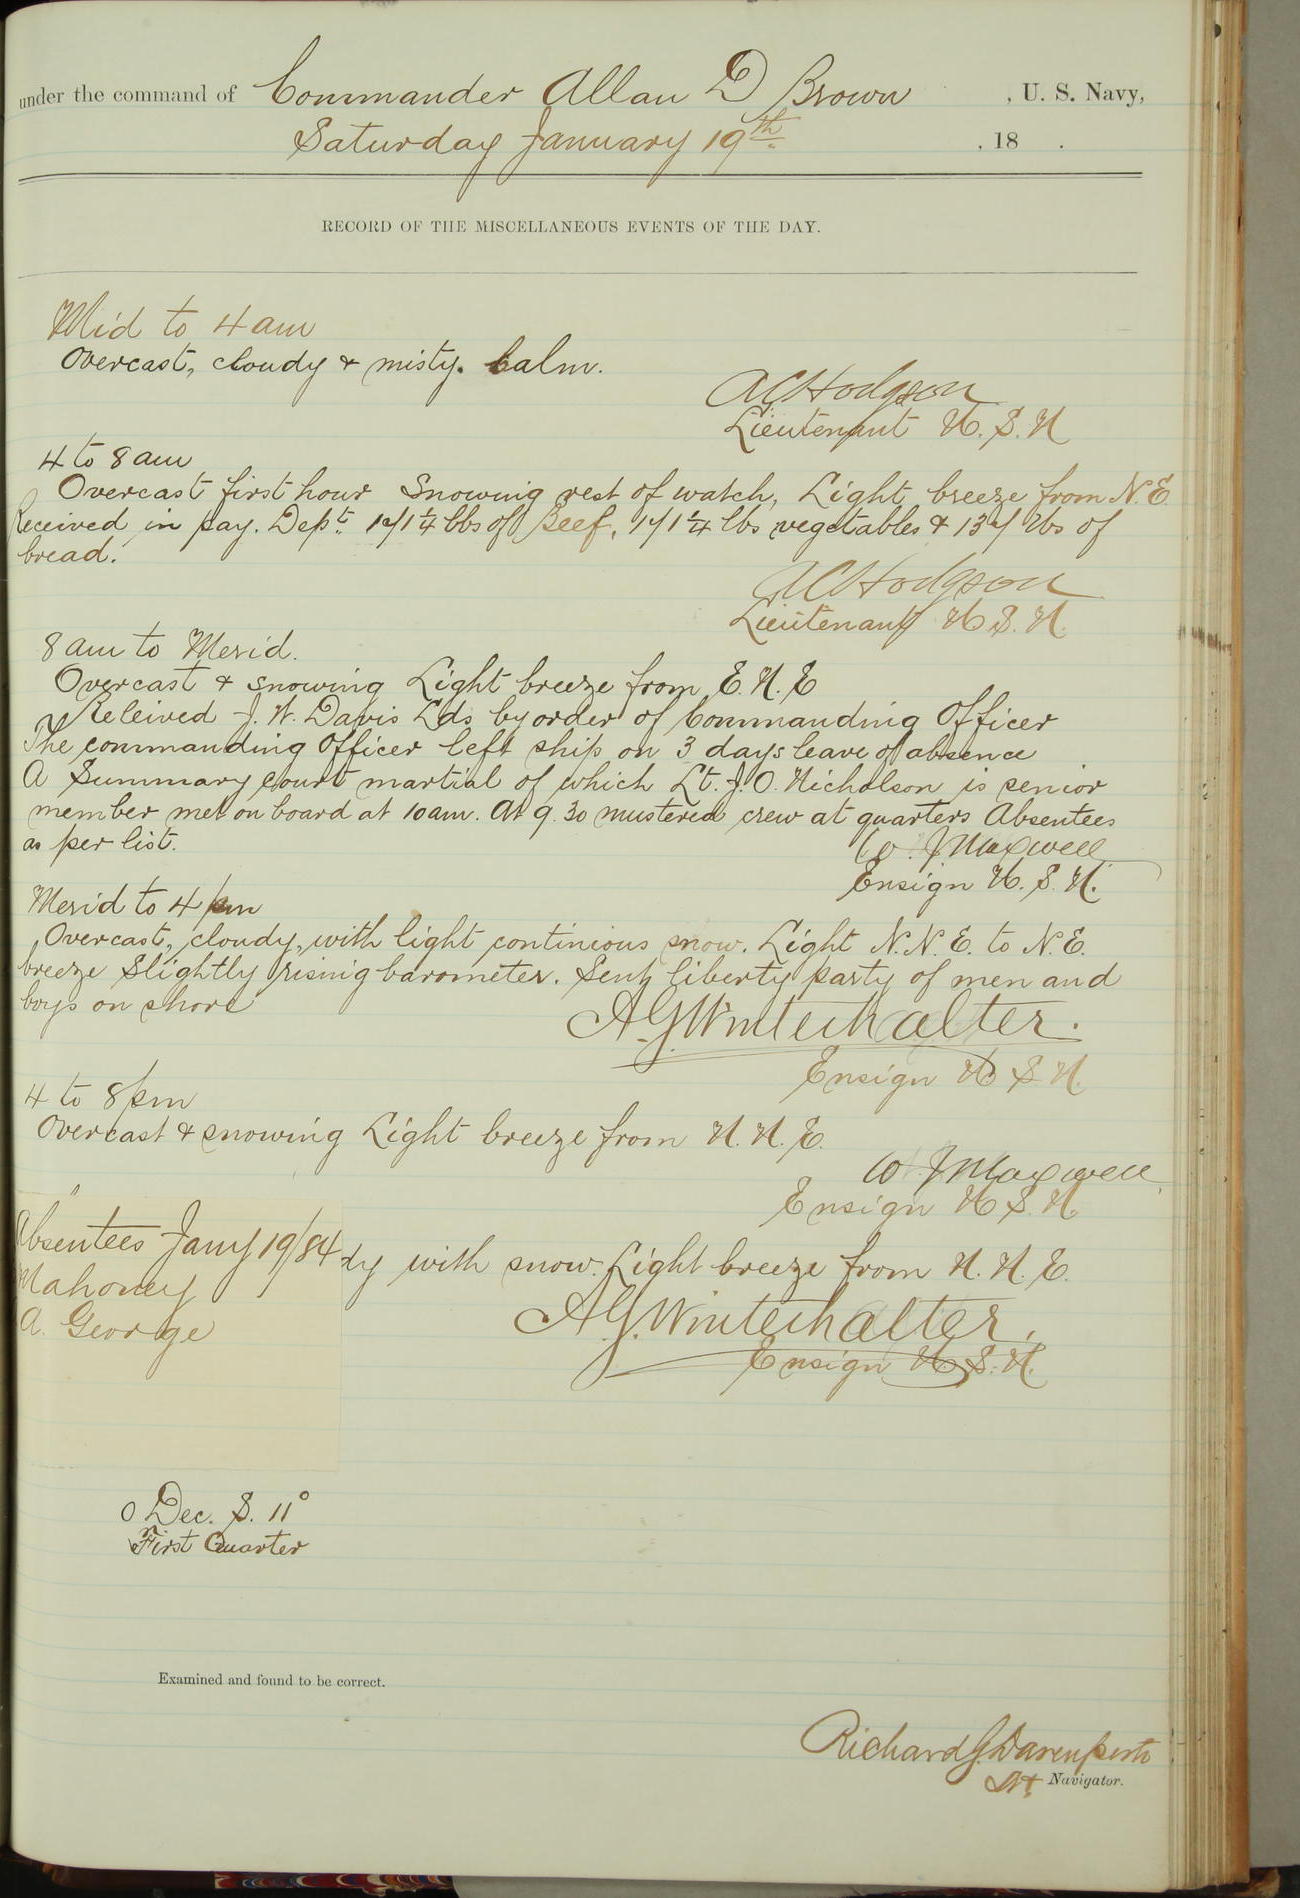 under the command of Commander Allan D Brown , U. S. Navy,
Saturday January 19th. , 18 .
RECORD OF THE MISCELLANEOUS EVENTS OF THE DAY.
Mid to 4 am
Overcast, cloudy & misty. Calm.
A C Hodgson
Lieutenant U. S. N
4 to 8 am
Overcast first hour Snowing rest of watch, Light breeze from N. E.
Received in pay. Dept. 171 1/4 lbs of Beef, 171 1/4 lbs vegetables & 137 lbs of
bread.
A C Hodgson
Lieutenant U. S. N.
8 am to Merid.
Overcast & snowing Light breeze from E. N. E
Received J. W. Davis Lds by order of Commanding Officer
The commanding Officer left ship on 3 days leave of absence
A Summary court martial of which Lt. J. O. Nicholson is senior
member met on board at 10 am. At 9.30 mustered crew at quarters Absentees
as per list.
W. J Maxwell
Ensign U. S. N.
Merid to 4 pm
Overcast, cloudy, with light continious snow. Light N. N. E. to N. E.
breeze Slightly rising barometer. Sent liberty party of men and
boys on shore
A. G. Winterhalter.
Ensign U S N.
4 to 8 pm
Overcast & snowing Light breeze from N. N. E.
W. J Maxwell
Ensign U. S. N.
Absentees Jany 19/84
dy with snow. Light breeze from N. N. E.
Mahoney
A. George
A. G. Winterhalter.
Ensign U. S. N.
O Dec. S. 11°
First Quarter
Examined and found to be correct.
Richard G. Davenport
Lt. Navigator.